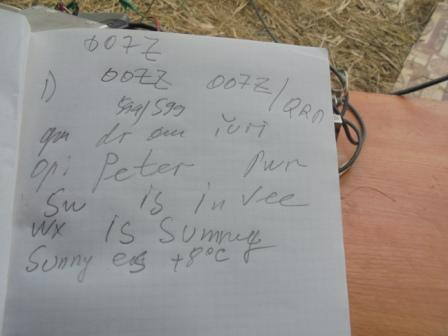 007Z
1) 007Z 007Z/QRP
599/599
gm dr om iuri
op: Peter Pwr
5w is in Vee
wx is Sunny
Sunny es +8°C